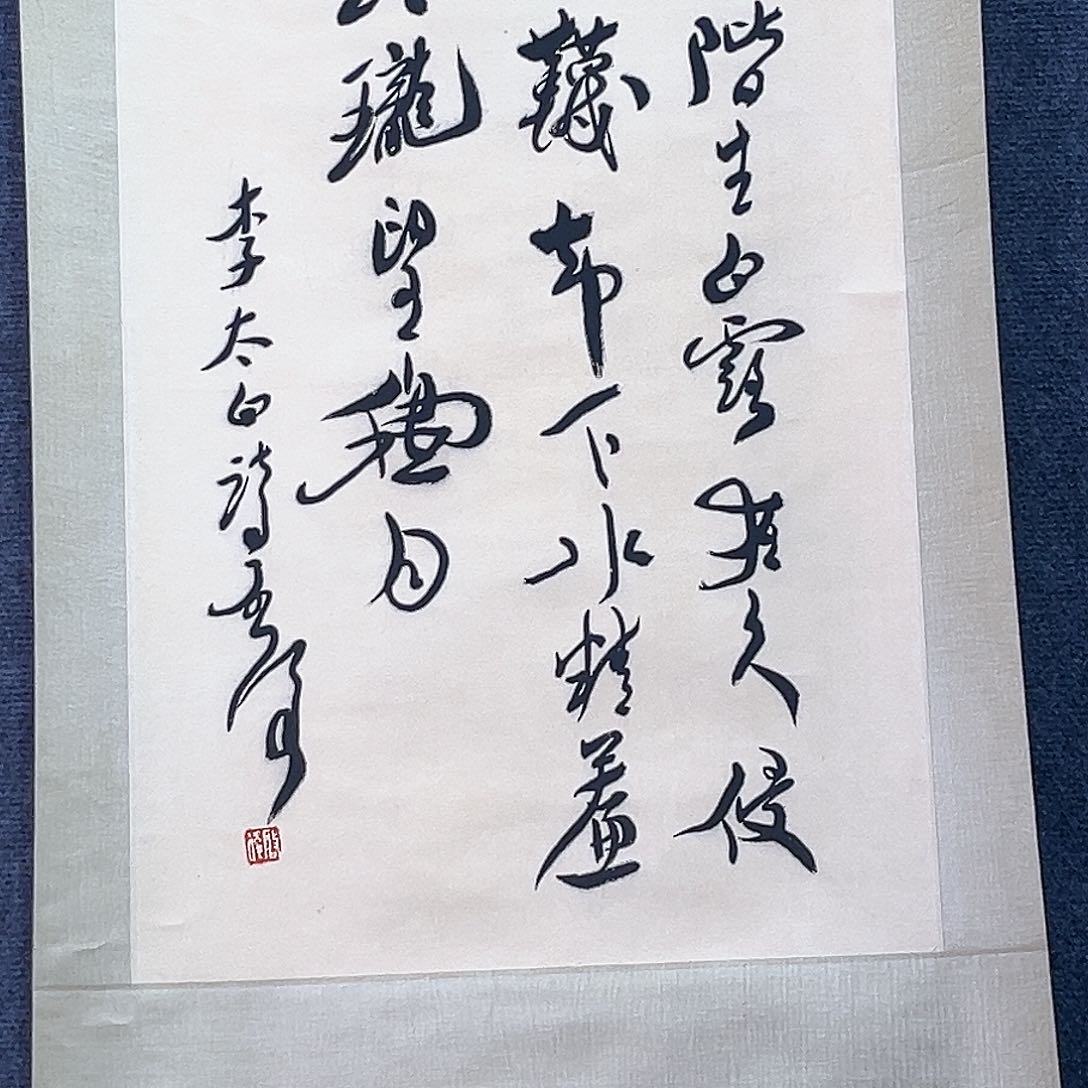 階生白露夜久侵
韈却下水精簾
瓏望秋月
李太白詩